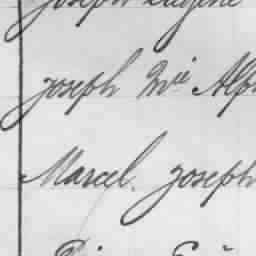 Joseph Eugène
Joseph Mie Alph
Marcel. Joseph